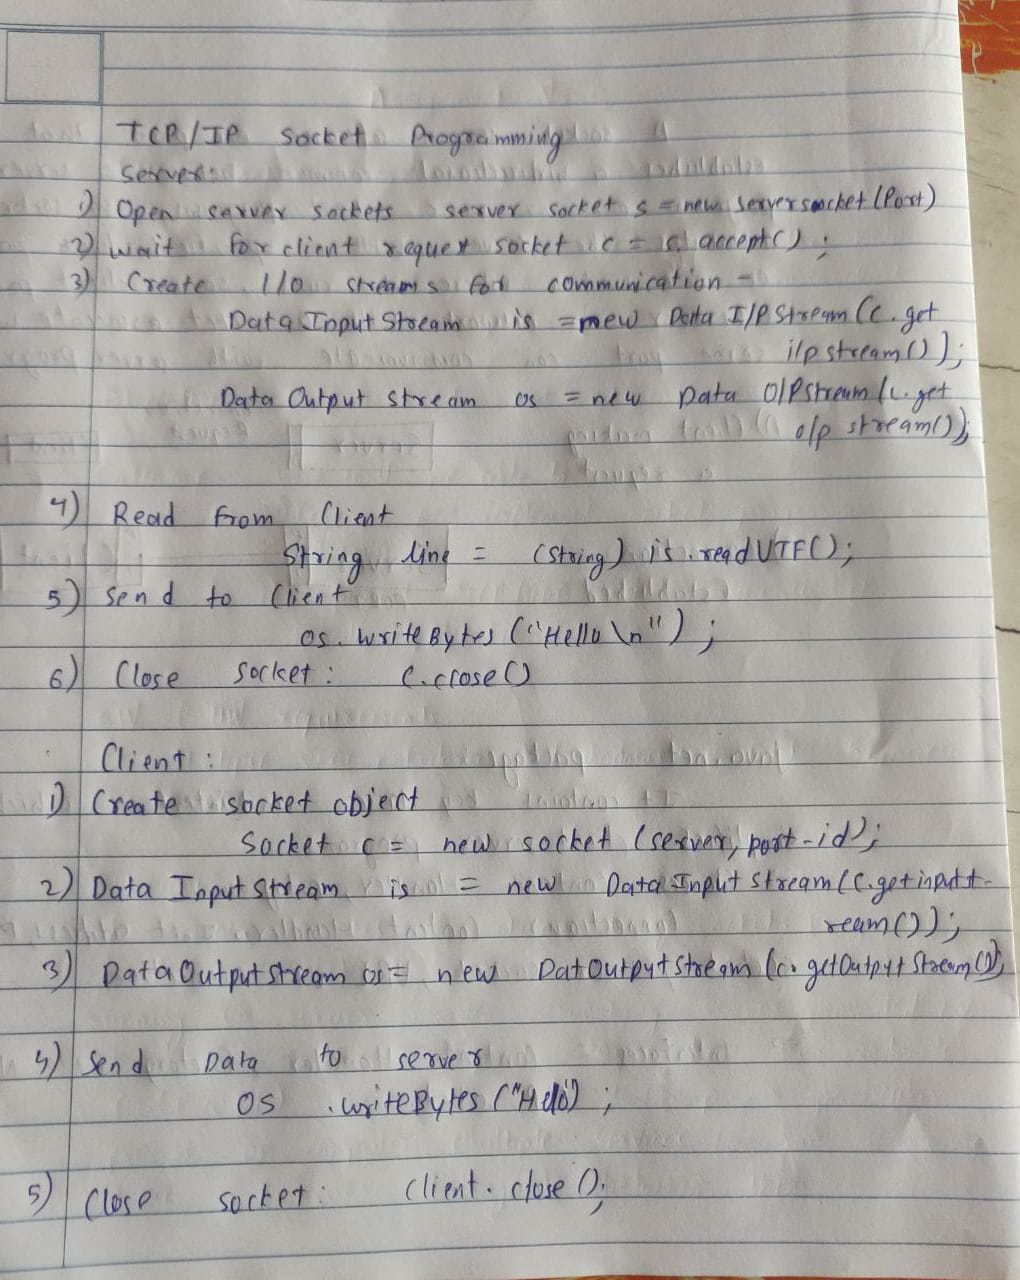 TCP/IP Socket Programming
Server:
1) Open server sockets server socket s = new serversocket (Port)
2) wait for client request socket c = s. accept() ;
3) Create I/O streams for communication -
Data Input Stream is = new Data I/P Stream (c. get
i/p stream () );
Data Output Stream os = new Data O/P Stream (c. get
o/p stream());
4) Read from Client
String line = (String) is. readUTF();
5) Send to Client
os. writeBytes ("Hello \n") ;
6) Close socket : c.close()
Client :
1) Create socket object
Socket c = new socket (server, port-id);
2) Data Input Stream is = new Data Input Stream (c.getinputt-
ream());
3) DataOutputStream os = new DatOutputStream (c. getOutputStream());
4) Send Data to server
OS .writeBytes ("Hello") ;
5) Close socket : Client. close ();